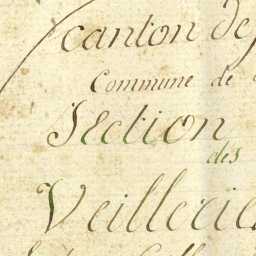 canton de
Commune de
Section
des
Veillerie